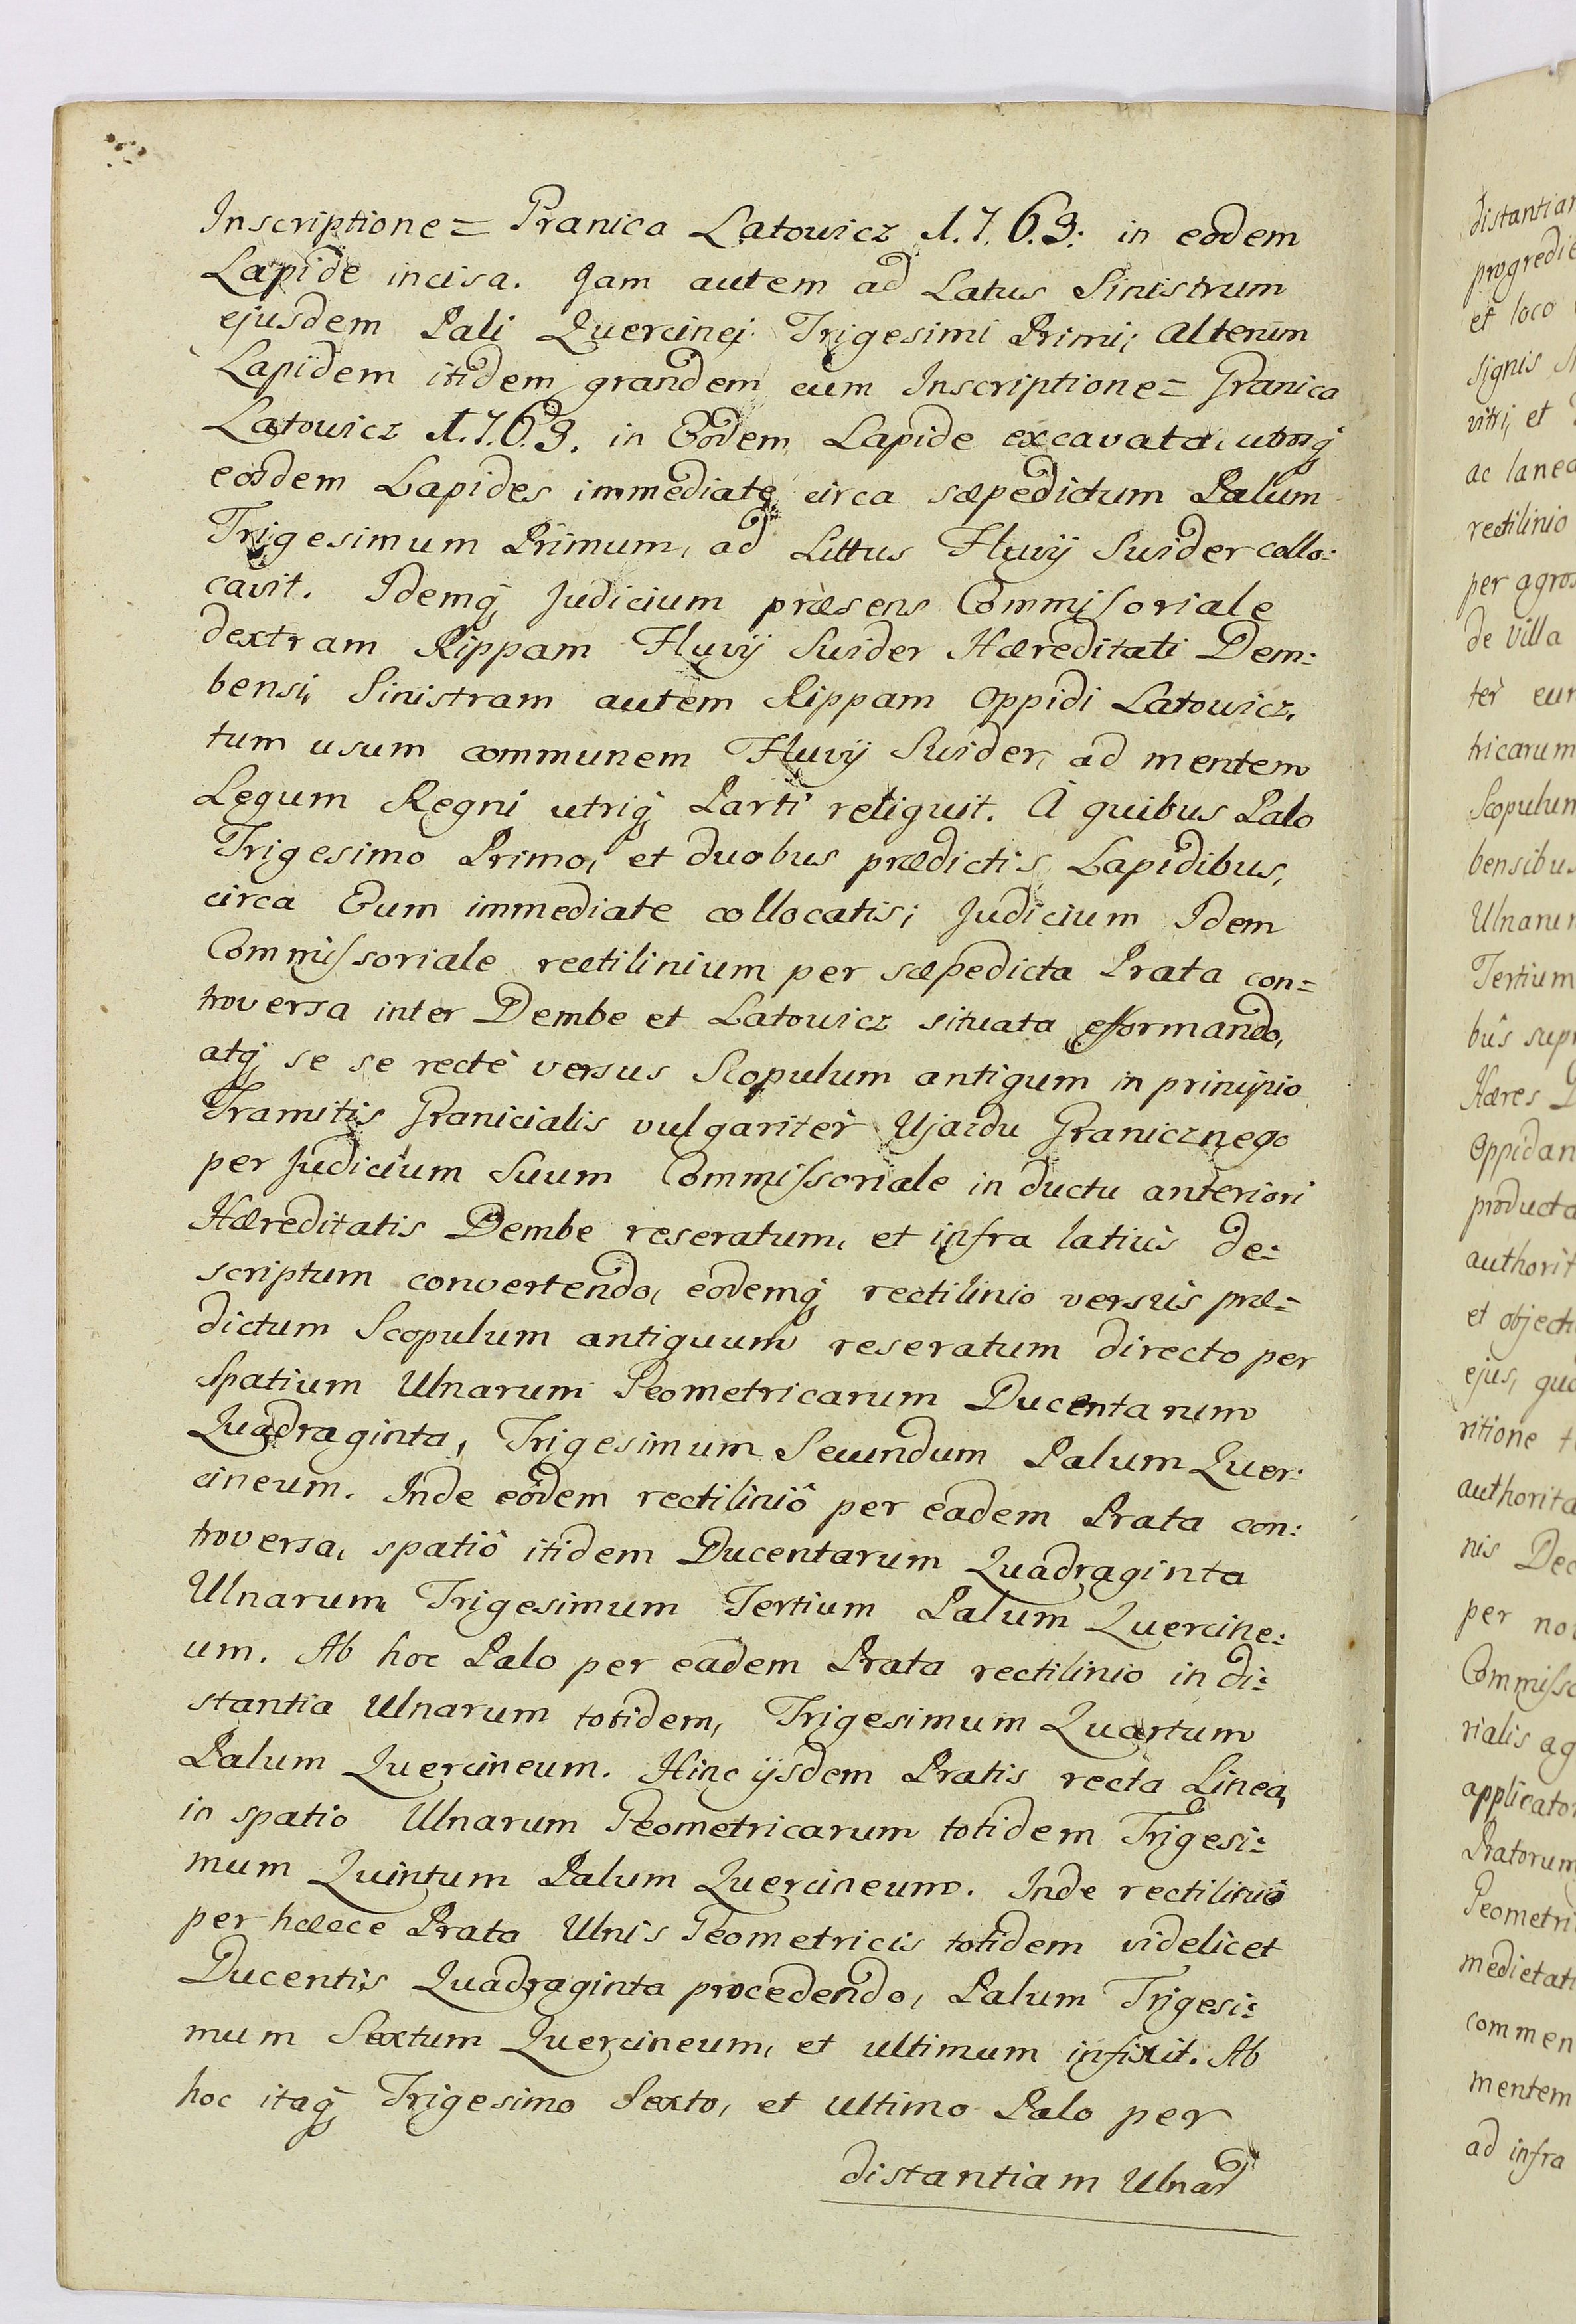 Inscriptione = Granica Latowicz 1.7.6.3: in eodem
Lapide incisa. Jam autem ad Latus Sinistrum
ejusdem Pali Quercinej Trigesimi Primi; alterum
Lapidem itidem grandem cum Inscriptione = Granica
Latowicz 1.7.6.3. in Eodem Lapide excavata, utrosq́
eosdem Lapides immediatè circa sæpedictum Palum
Trigesimum Primum, ad Littus Fluvij Swider collo:
cavit. Idemq́ Judicium præsens Commissoriale
dextram Rippam Fluvij Swider Hæreditati Dem:
bensi, Sinistram autem Rippam Oppidi Latowicz,
tum usum communem Fluvij Swider, ad mentem
Legum Regni utriq́ Parti reliquit. A quibus Palo
Trigesimo Primo, et duobus prædictis Lapidibus,
circa Eum immediate collocatis; Judicium Idem
Commissoriale rectilinium per sæpedicta Prata con=
troversa inter Dembe et Latowicz situata efformando,
atq́ se se rectè versus Scopulum antiqum in principio
Tramitis Granicialis vulgariter Ujazdu Granicznego
per Judicium Suum Commissoriale in ductu anteriori
Hæreditatis Dembe reseratum, et infra latiùs de:
scriptum convertendo, eodemq́ rectilinio versùs præ=
dictum Scopulum antiquum reseratum directo per
Spatium Ulnarum Geometricarum Ducentarum
Quadraginta, Trigesimum Secundum Palum Quer:
cineum. Inde eôdem rectiliniô per eadem Prata con:
troversa, spatiô itidem Ducentarum Quadraginta
Ulnarum Trigesimum Tertium Palum Quercine:
um. Ab hoc Palo per eadem Prata rectilinio in di:
stantia Ulnarum totidem, Trigesimum Quartum
Palum Quercineum. Hinc ijsdem Pratis recta Linea,
in spatio Ulnarum Geometricarum totidem Trigesi:
mum Quintum Palum Quercineum. Inde rectiliniô
per hæcce Prata Ulnis Geometricis totidem videlicet
Ducentis Quadraginta procedendo, Palum Trigesi:
mum Sextum Quercineum, et ultimum infixit. Ab
hoc itaq́ Trigesimo Sexto, et ultimo Palo per
distantiam Ulnar
distantiam
et loco
signis
vitri, et
ac lanea
rectilinio
per agros
de Villa
ter
tricarum
Scopulum
bensibus
Tertium
Hæres
producta
ejus,
ritione
per
Pratorum
mentem
ad infra